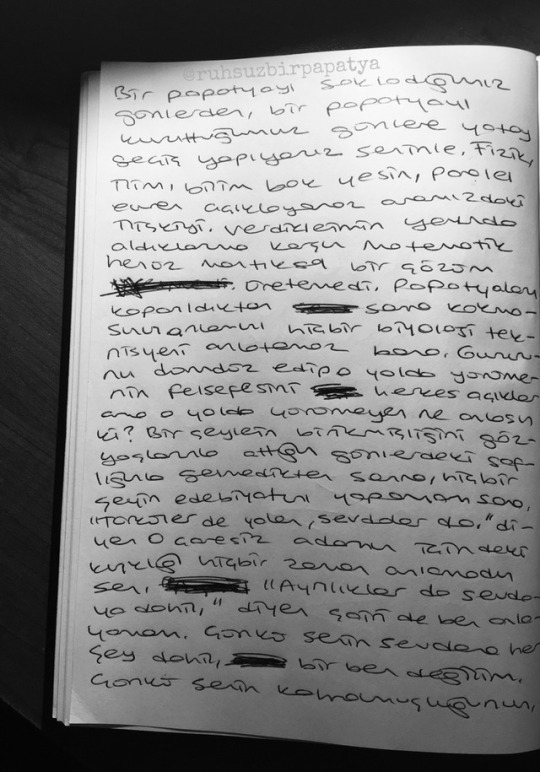 @ruhsuzbirpapatya
Bir papatyayı sakladığımız
günlerden, bir papatyayı
kuruttuğumuz günlere yatay
geçiş yapıyoruz seninle. Fizik,
ilim, bilim bok yesin, paralel
evren açıklayamaz aramızdaki
ilişkiyi. Verdiklerimin yanında
aldıklarıma karşın matematik
henüz mantıksal bir çözüm
üretemedi. Papatyaların
koparıldıktan sonra kokma-
sınlarını hiçbir biyoloji tek-
nisyeni anlatamaz bana. Gururu-
nu dümdüz edip o yolda yürüme-
nin felsefesini herkes açıklar
ama o yolda yürümeyen ne anlasın
ki? Bir şeylerin birikmişliğini göz-
yaşlarıyla attığın günlerdeki saf-
lığında gelmedikten sonra, hiçbir
şeyin edebiyatını yapamam sana.
"Türküler de yalan, sevdalar da." di-
yen o çaresiz adamın içindeki
kırıklığı hiçbir zaman anlamadın
sen. "Ayrılıklar da sevda-
ya dahil," diyen şairi de ben anla-
yamam. Çünkü senin sevdana her
şey dahil, bir ben değilim.
Çünkü senin